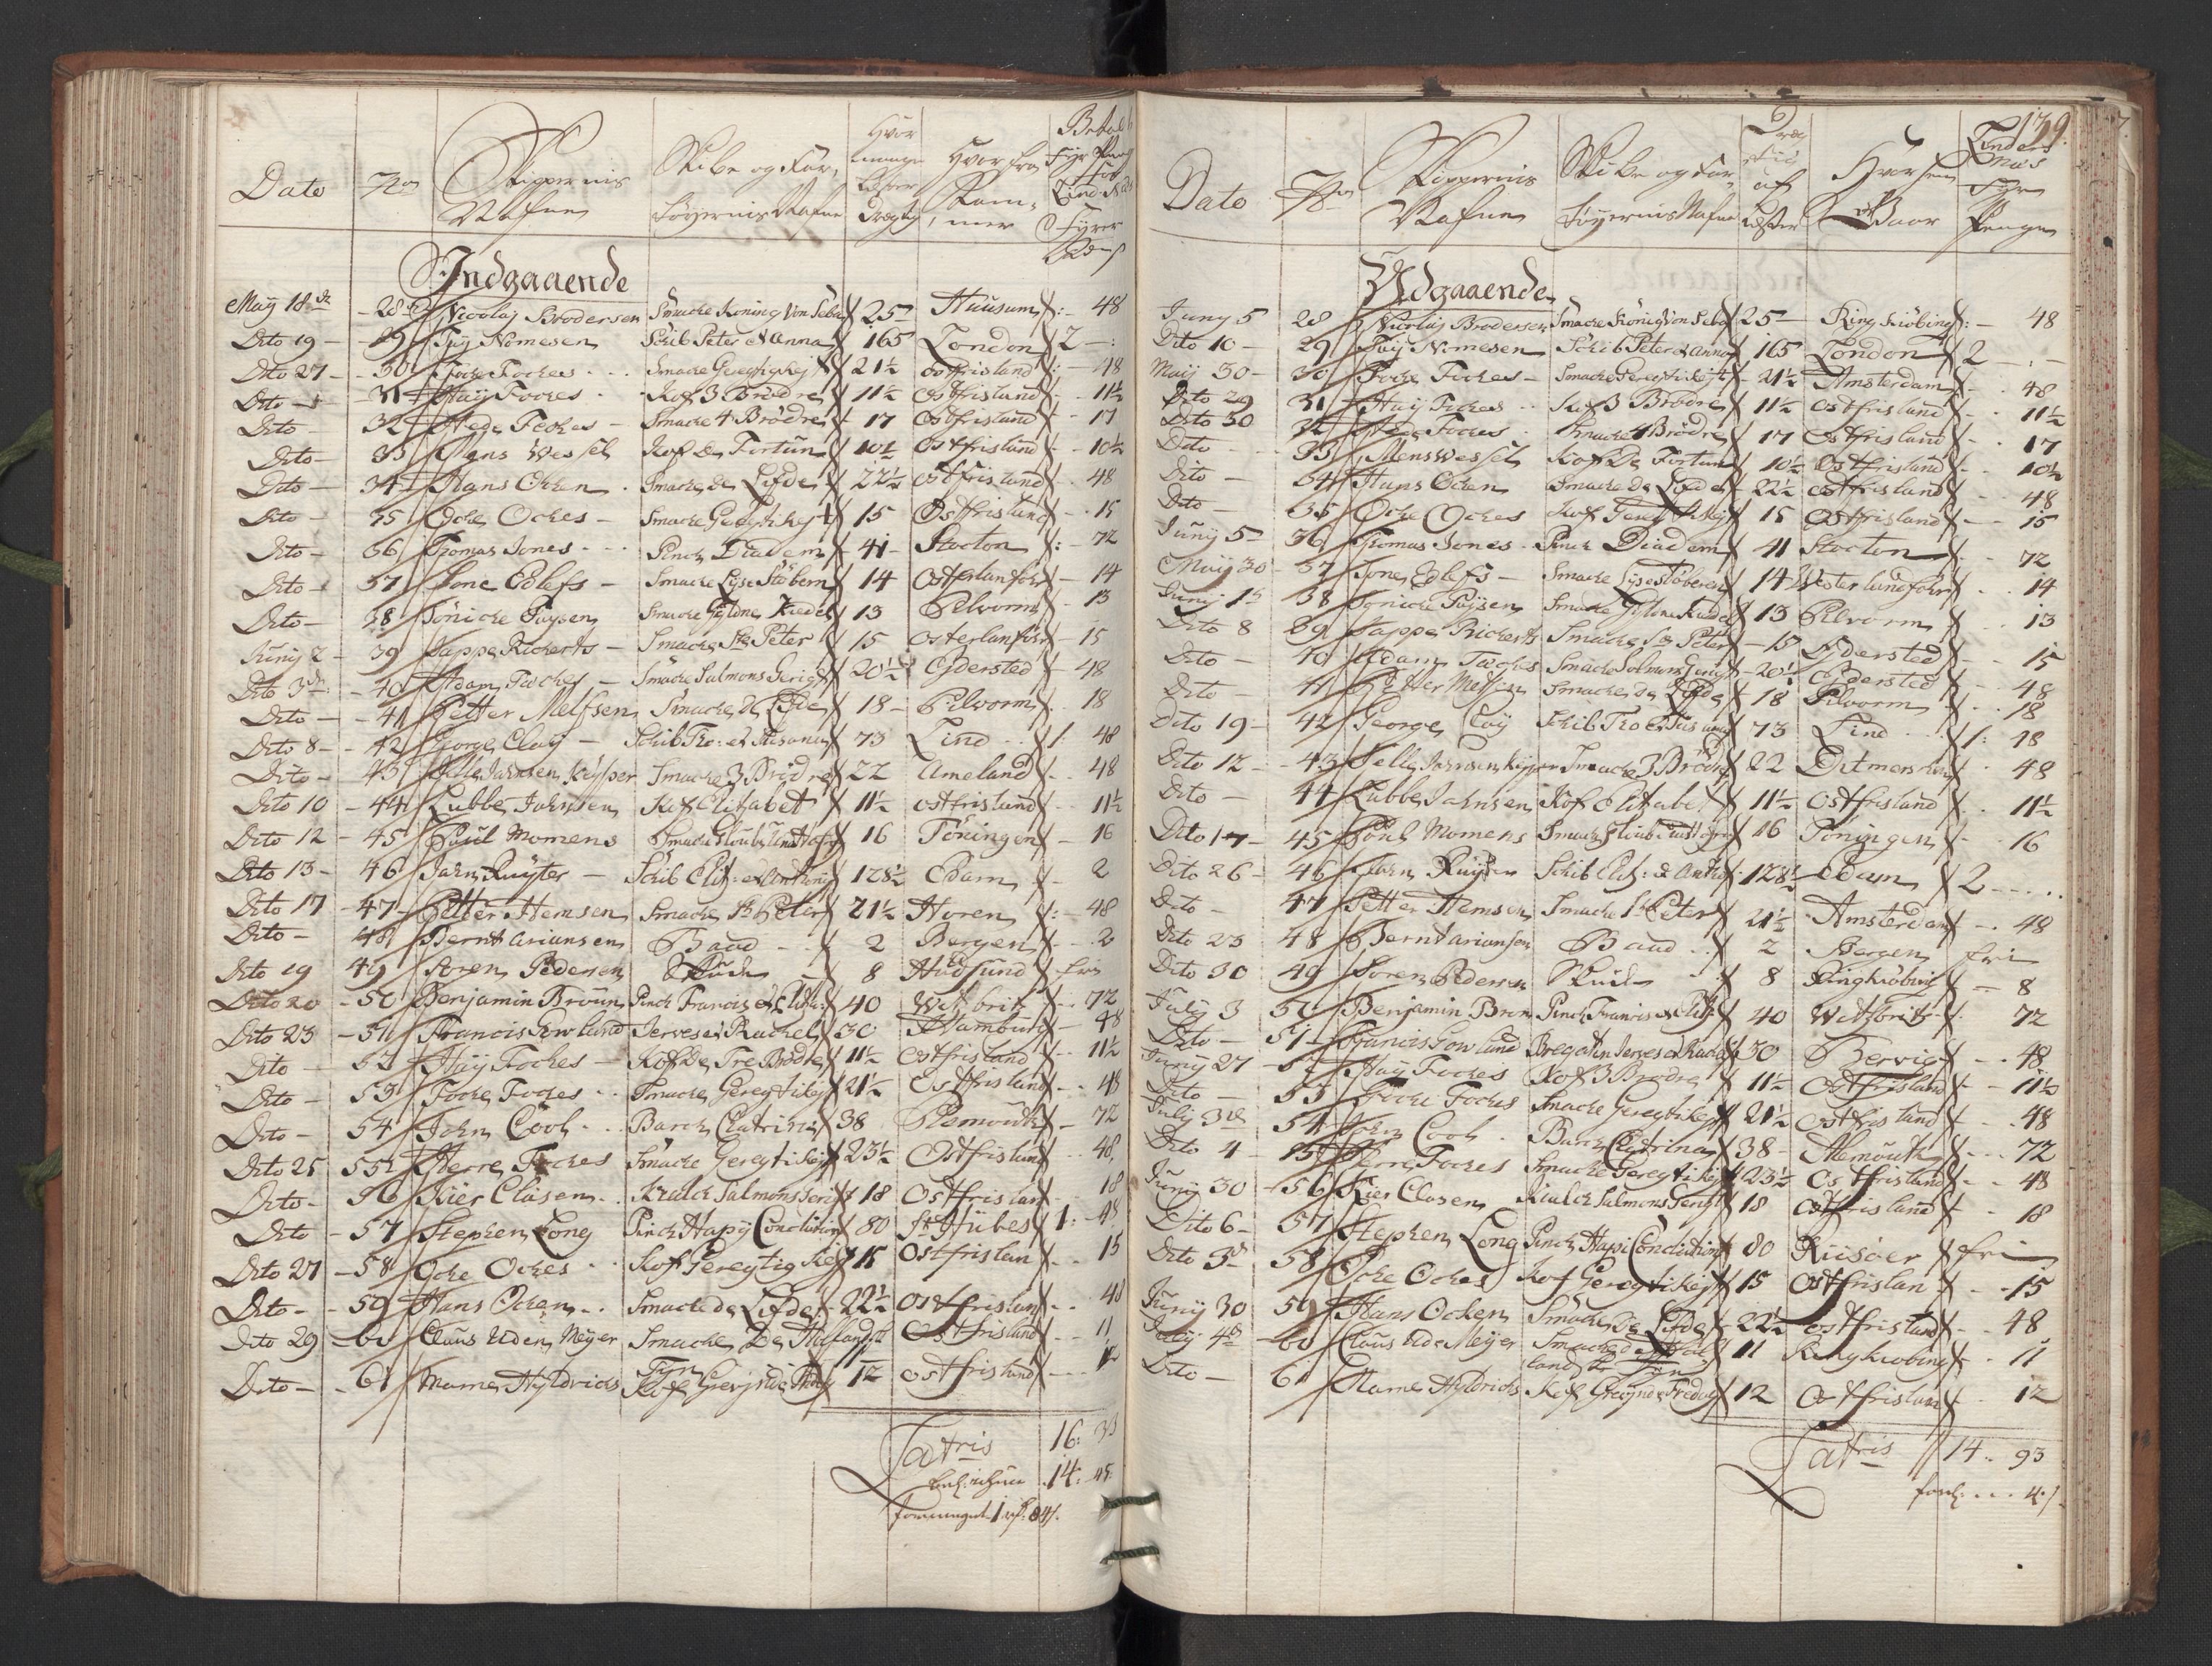 Dato No Skipernis Nafne Skibe og Far, tøyernis Nafne Hvor mange Læster Drægtig Hvor fra Kom, mer
Indgaaende
Maij 18de 28de Nicolaj Brodersen Smacke Koning Von 25 Huusum 48
Dito 19 29 Tuy Nomesen Schib Peter et Anna 165 London 2
Dito 27 30 Focke Fockes Smacke Geregtigkejt 21½ Ostfrisland 48
Dito 31 Haÿ Fockes Kof 3 Brødre 11½ Ostfrisland 11½
Dito 32 Fockes Smacke 4 Brødre 17 Ostfrisland 17
Dito 33 Mens Wessels Kof De Fortuna 10½ Ostfrisland 10½
Dito 34 Hans Ocken Smacke de Liefde 22½ Ostfrisland 48
Dito 35 Ocke Ockes Smacke Geregtikejt 15 Ostfrisland 15
Dito 36 Thomas Jones Pinck Diadem 41 Stocton 72
Dito 37 Edlefs Smacke 14 Osterlanføhr 14
Dito 38 Tönicke Paysen Smacke Gyldne 13 Pilvorm 13
Junÿ 2 39 Jappe Rickerts Smacke St. Peter 15 Osterlanføhr 15
Dito 3de 40 Adam Smacke Salmons Gerigt 20½ Eydersted 48
Dito 41 Petter Melfsen Smacke de Liefde 18 Pilvorm 18
Dito 8 42 George Claÿ Schib Tho: et Susanna 73 Lind 1 48
Dito 43 Jelle Jahnsen Smacke 3 Brødre 22 Ameland 48
Dito 10 44 Lubbe Jahnsen Kof Elisabet 11½ Ostfrisland 11½
Dito 12 45 Poul Momens Smacke 16 Töningen 16
Dito 13 46 Jahn Ruyter Schib Elis: et Anthonij 128½ Edam 2
Dito 17 47 Petter Hemsen Smacke St. Peter 21½ Horen 48
Dito 48 Bernt Ariansen Baad 2 Bergen 2
Dito 19 49 Soren Pedersen Skude 8 fri
Dito 20 50 Benjamin Broun Pinck Francis et Elisa: 40 Witbrit 72
Dito 23 51 Francis Gowland Jerves et Rachel 30 Hamburg 48
Dito 52 Haÿ Fockes Kof De Tre Brødre 11½ Ostfrisland 11½
Dito 53 Focke Fockes Smacke Geregtikejt 21½ Ostfrisland 48
Dito 54 John Cook Barck Catrina 38 Plemouth 72
Dito 25 55 Fockes Smacke Geregtikejt 23½ Ostfrislan 48
Dito 56 Kier Clasen Salmons 18 Ostfrislan 18
Dito 57 Stephen Long Pinck Hapÿ Conclution 80 St. Hübes 1: 48
Dito 27 58 Ocke Ockes Kof Geregtigkejt 15 Ostfrislan 15
Dito 59 Hans Ocken Smacke de Liefde 22½ Ostfrislan 48
Dito 29 60 Claus Uden Meÿer Smacke De 11 Ostfrisland 11
Dito 61 Hÿldrichs Kof 12 Ostfrisland 12
Latris 16: 33
14: 45
139
Dato No Skipernis Nafne Skibe og Far, tøyernis Nafne Dræ, gtig af Læster Hvor hen Naar Lindes, næs Fyre Penge
Udgaaende
Juny 5 28 Nicolaj Brodersen Smacke König Von 25 Ring Kiøbing 48
Dito 10 29 Tuÿ Nomesen Schib Peter et Anna 165 London 2
Maij 30 30 Focke Fockes Smacke Geregtikejt 21½ Amsterdam 48
Dito 29 31 Haÿ Fockes Kof 3 Brødre 11½ Ostfrisland 11½
Dito 30 32 Fockes Smacke 4 Brødre 17 Ostfrisland 17
Dito 33 Mens Wessels Kof De Fortuna 10½ Ostfrisland 10½
Dito 34 Hans Ocken Smacke de Liefde 22½ Ostfrisland 48
Dito 35 Ocke Ockes Kof 15 Ostfrisland 15
Juny 5 36 Thomas Jones Pinck Diadem 41 Stocton 72
Maij 30 37 Edlefs Smacke 14 Westerlandføhr 14
Junij 1st 38 Tönicke Paÿsen Smacke 13 Pilvorm 13
Dito 8 39 Jappe Rickerts Smacke St. Peter 15 Eydersted 15
Dito 40 Adam Smacke Salmons Gerigt 20½ Eydersted 48
Dito 41 Petter Melfsen Smacke de Liefde 18 Pilvorm 18
Dito 19 42 George Claÿ Schib Tho et Susanna 73 Lind 1: 48
Dito 12 43 Jelle Jahnsen Smacke 3 Brødre 22 Ditmersken 48
Dito 44 Lubbe Jahnsen Kof Elisabet 11½ Ostfrisland 11½
Dito 17 45 Poul Momens Smacke 16 Töningen 16
Dito 26 46 Jahn Ruÿter Schib Elis: et Antho 128½ Edam 2
Dito 47 Petter Hemsen Smacke St. Peter 21½ Amsterdam 48
Dito 23 48 Bernt Ariansen Baad 2 Bergen fri
Dito 30 49 Soren Pedersen Skude 8 Ringkiøbing 8
July 3 50 Benjamin Bron Pinck Francis et Elis 40 Witbrit 72
Dito 51 Francis Gowland Bregatin Jerves et Rachel 30 Bervig 48
Junij 27 52 Haÿ Fockes Kof 3 Brødre 11½ Ostfrisland 11½
Dito 53 Focke Fockes Smacke Geregtikejt 21½ Ostfrisland 48
Julij 3de 54 John Cook Barck Catrina 38 72
Dito 4 55 Fockes Smacke Geregtikejt 23½ Ostfrisland 48
Junij 30 56 Kier Clasen Salmons Gerigt 18 Ostfrisland 18
Dito 6 57 Stephen Long Pinck Hapi Conclution 80 Riisøer fri
Dito 3de 58 Ocke Ockes Kof Geregtikejt 15 Ostfrislan 15
Junij 30 59 Hans Ocken Smacke De Liefde 22½ Ostfrisland 48
Julij 4de 60 Claus Ude Meÿer Smacke de 11 Ringkiøbing 11
Dito 61 Hÿldrichs Kof 12 Ostfrislan 12
Latris 14 .. 93